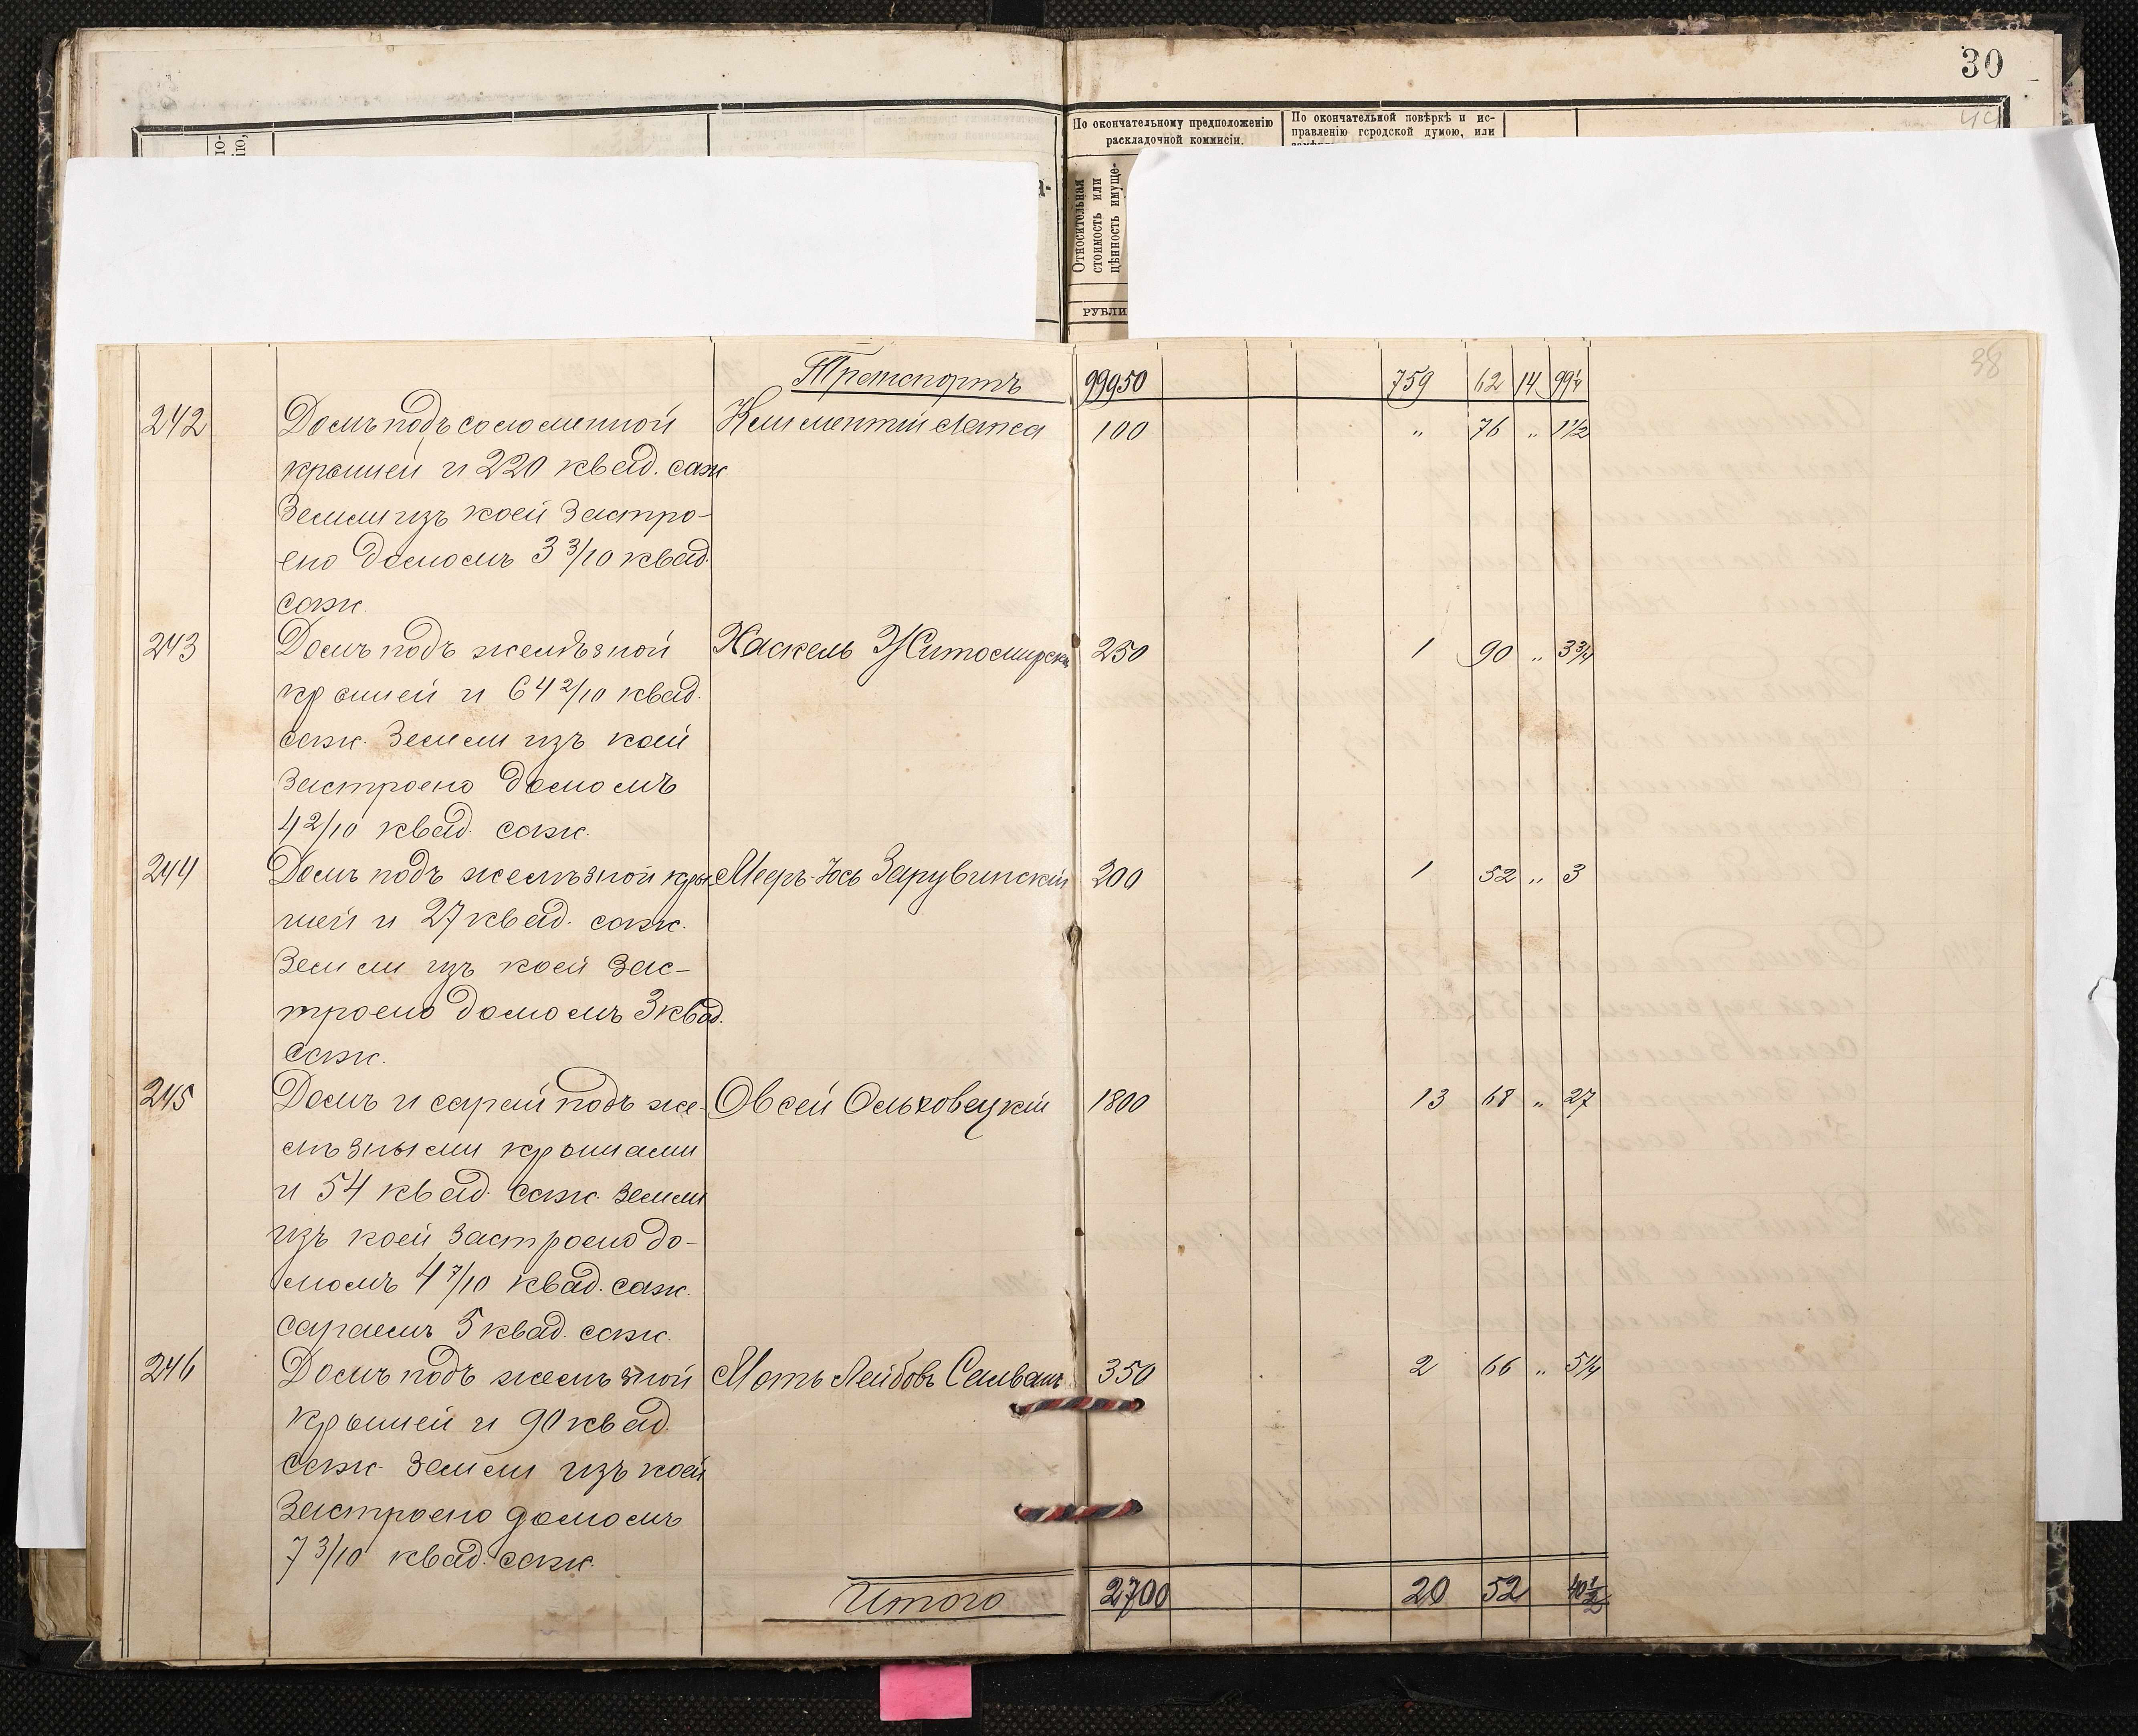 30
По окончательному предположенію раскладочной коммисіи.
По окончательной повѣркѣ и ис-
правленію городской думою, или
Относительная
стоимость или
цѣнность имуще-
РУБЛИ
38
Транспортъ 99950 759 62 14 99¼
242 Домъ подъ соломенной Климентій Лата 100 „ 76 „ 1½
крышей и 220 квад. саж
земли изъ коей застро-
ено домомъ 3 3/10 квад.
саж.
243 Домъ подъ желѣзной Хаскель Житомирскі 250 1 90 „ 3¾
крышей и 64 2/10 квад.
саж. земли изъ коей
застроено домомъ
4 2/10 квад. саж.
244 Домъ подъ желѣзной кры Мееръ-Іось Зарубинскій 200 1 52 „ 3
шей и 27 квад. саж.
земли изъ коей зас-
троено домомъ 3 квад.
саж.
245 Домъ и сарай подъ же- Овсей Ольховецкій 1800 13 68 „ 27
лѣзными крышами
и 54 квад. саж. земли
изъ коей застроено до-
момъ 4 7/10 квад. саж.
сараемъ 5 квад. саж.
246 Домъ подъ желѣзной Лейбовъ 350 2 66 „ 5¼
крышей и 90 квад.
саж. земли изъ коей
застроено домомъ
7 3/10 квад. саж.
Итого 2700 20 52 40½